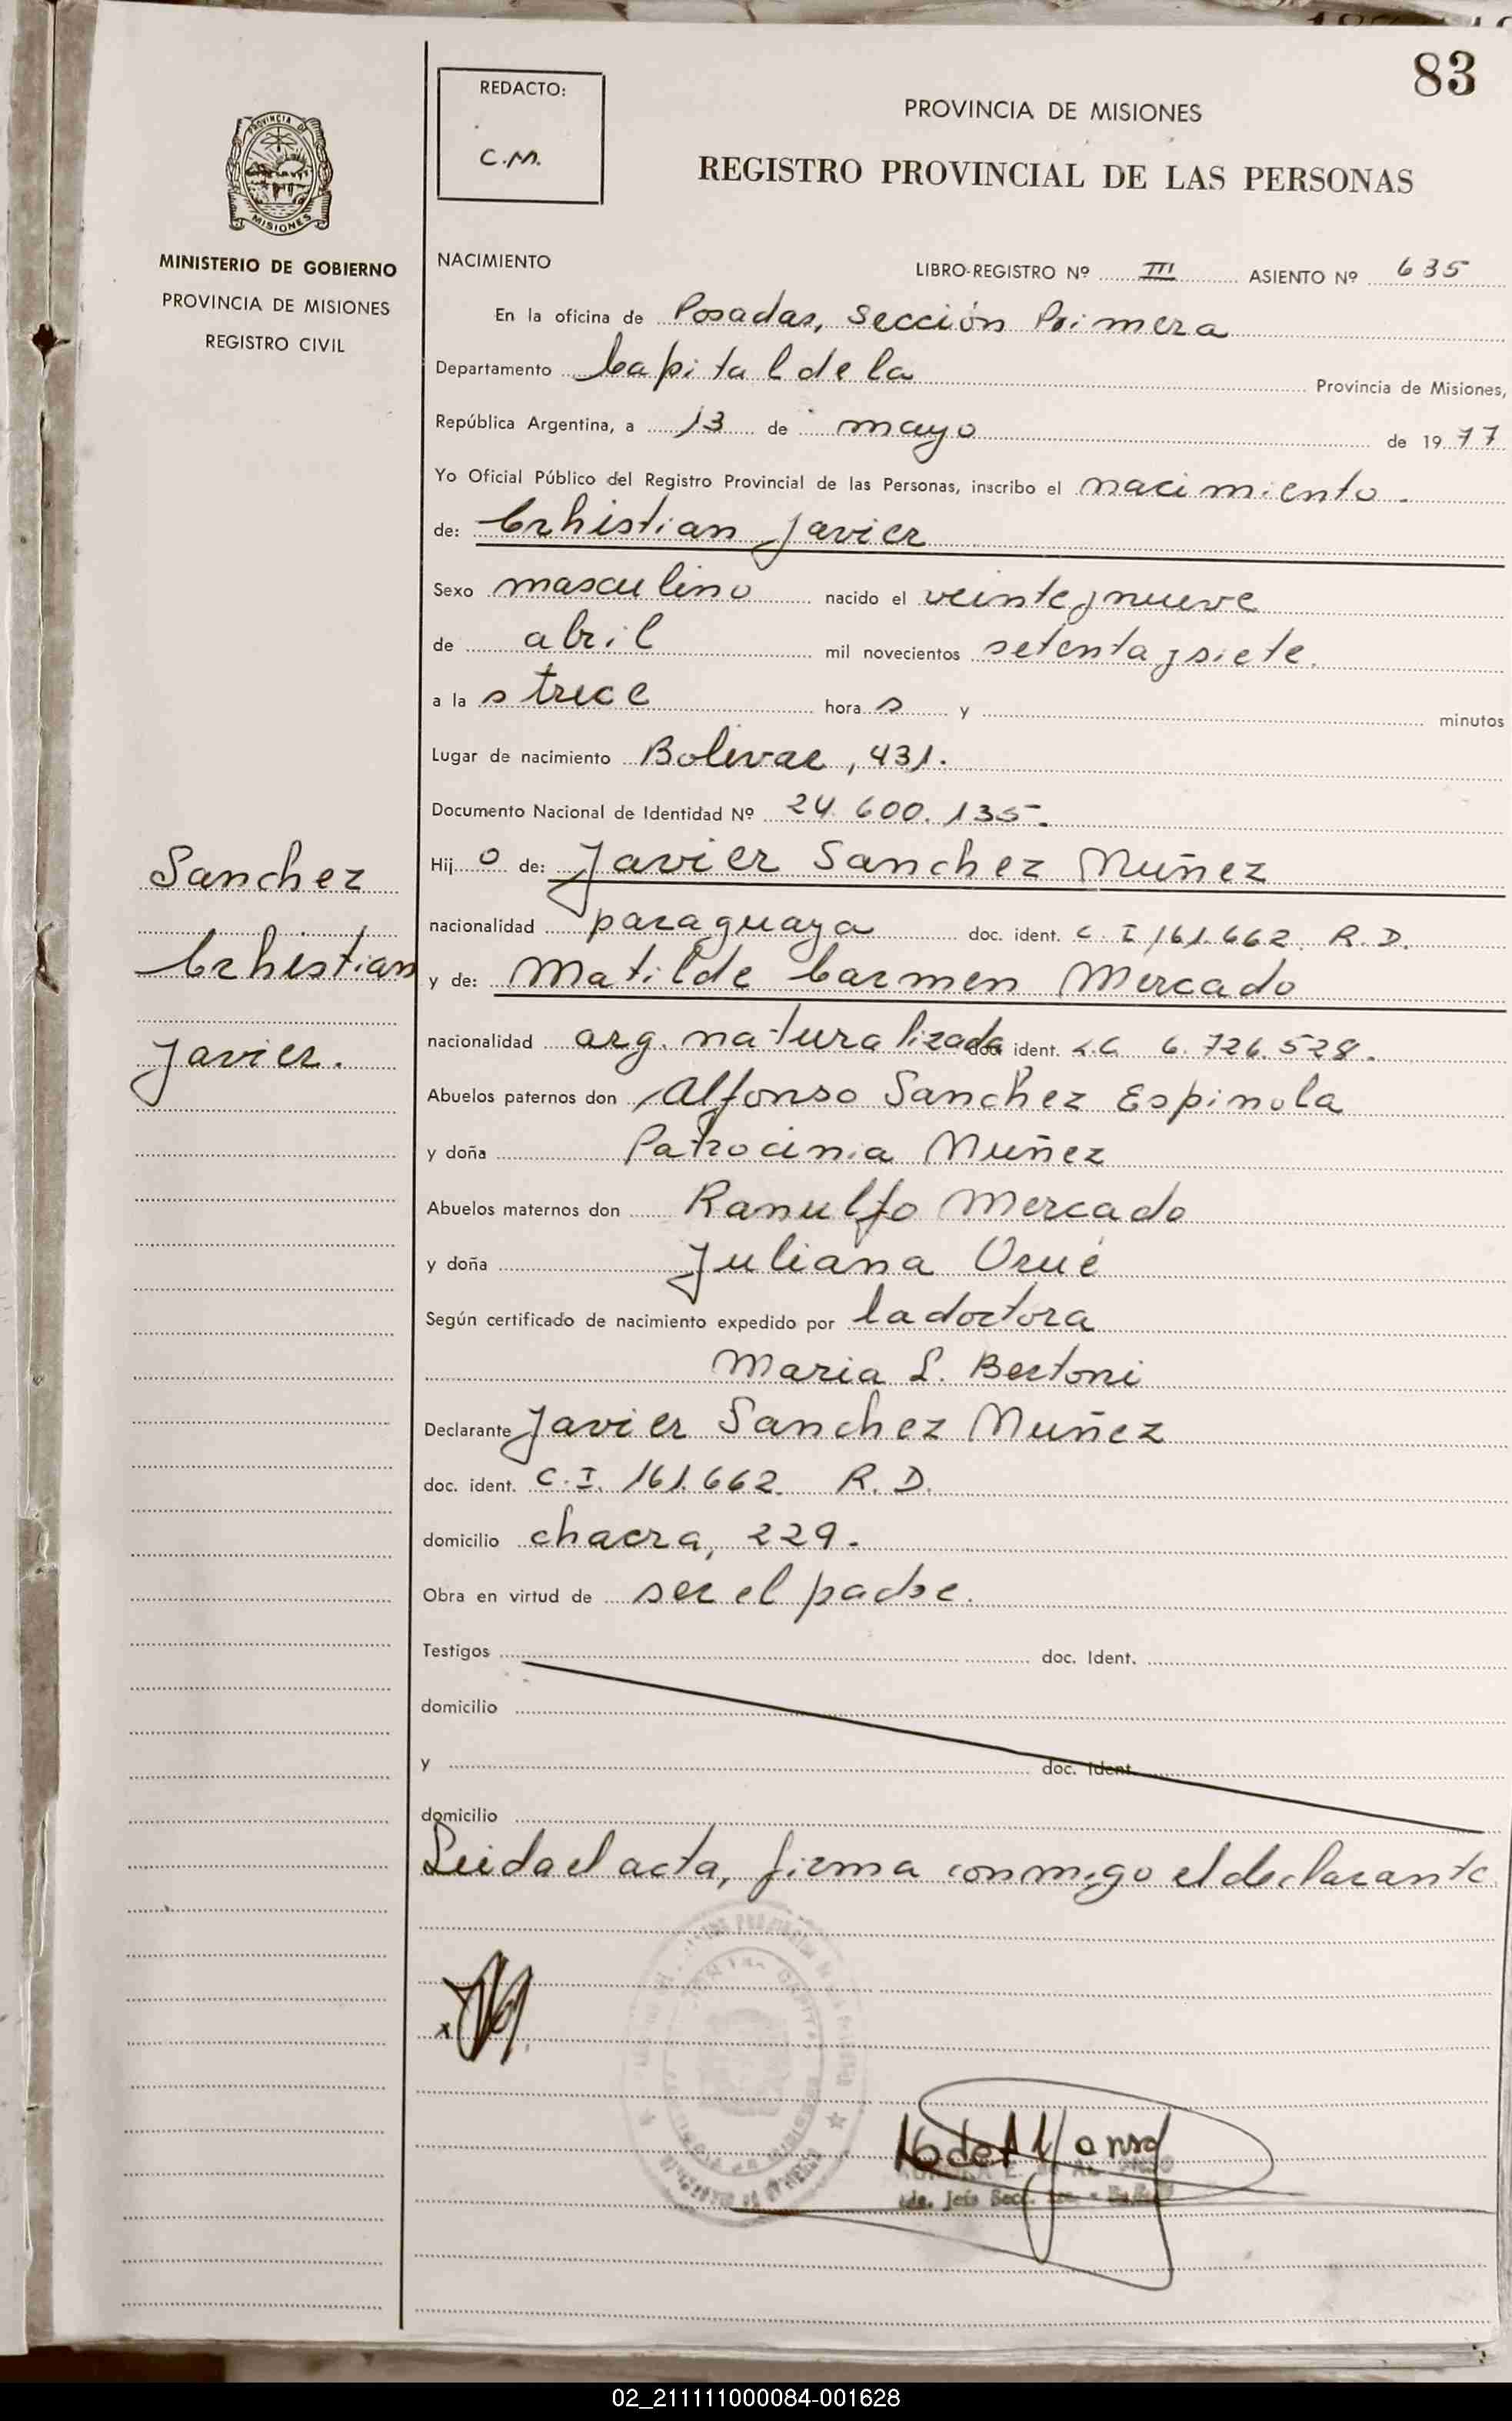 83
REDACTO:
C.M.
PROVINCIA DE MISIONES
REGISTRO PROVINCIAL DE LAS PERSONAS
PROVINCIA DE
MISIONES
MINISTERIO DE GOBIERNO
PROVINCIA DE MISIONES
REGISTRO CIVIL
NACIMIENTO LIBRO-REGISTRO Nº III ASIENTO Nº 635
En la oficina de Posadas, Sección Primera
Departamento Capital de la Provincia de Misiones,
República Argentina, a 13 de mayo de 1977
Yo Oficial Público del Registro Provincial de las Personas, inscribo el nacimiento.
de: Crhistian Javier
Sexo masculino nacido el veinte y nueve
de abril mil novecientos setenta y siete.
a la s trece hora s y minutos
Lugar de nacimiento Bolivar, 431.
Documento Nacional de Identidad Nº 24.600.135.
Hij o de: Javier Sanchez Nuñez
nacionalidad paraguaya doc. ident. C. I 161.662. R. D.
y de: Matilde Carmen Mercado
nacionalidad arg. naturalizada doc. ident. L.C. 6.726.528.
Abuelos paternos don Alfonso Sanchez Espinola
y doña Patrocinia Nuñez
Abuelos maternos don Ranulfo Mercado
y doña Juliana Orué
Según certificado de nacimiento expedido por la doctora
Maria L. Bertoni
Declarante Javier Sanchez Nuñez
doc. ident. C. I. 161.662. R. D.
domicilio chacra, 229.
Obra en virtud de ser el padre.
Testigos doc. Ident.
domicilio
y doc. Ident.
domicilio
Leida el acta, firma conmigo el declarante.
Sanchez
Crhistian
Javier.
x
de Alfonso
02_211111000084-001628